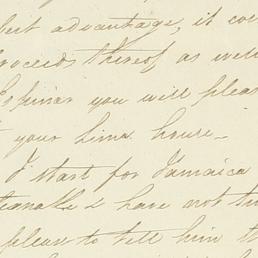 best advantage, it co
proceeds thereof as well
Espinar you will pleas
your Lima house.
I start for Jamaica
& have not tim
please to tell him th